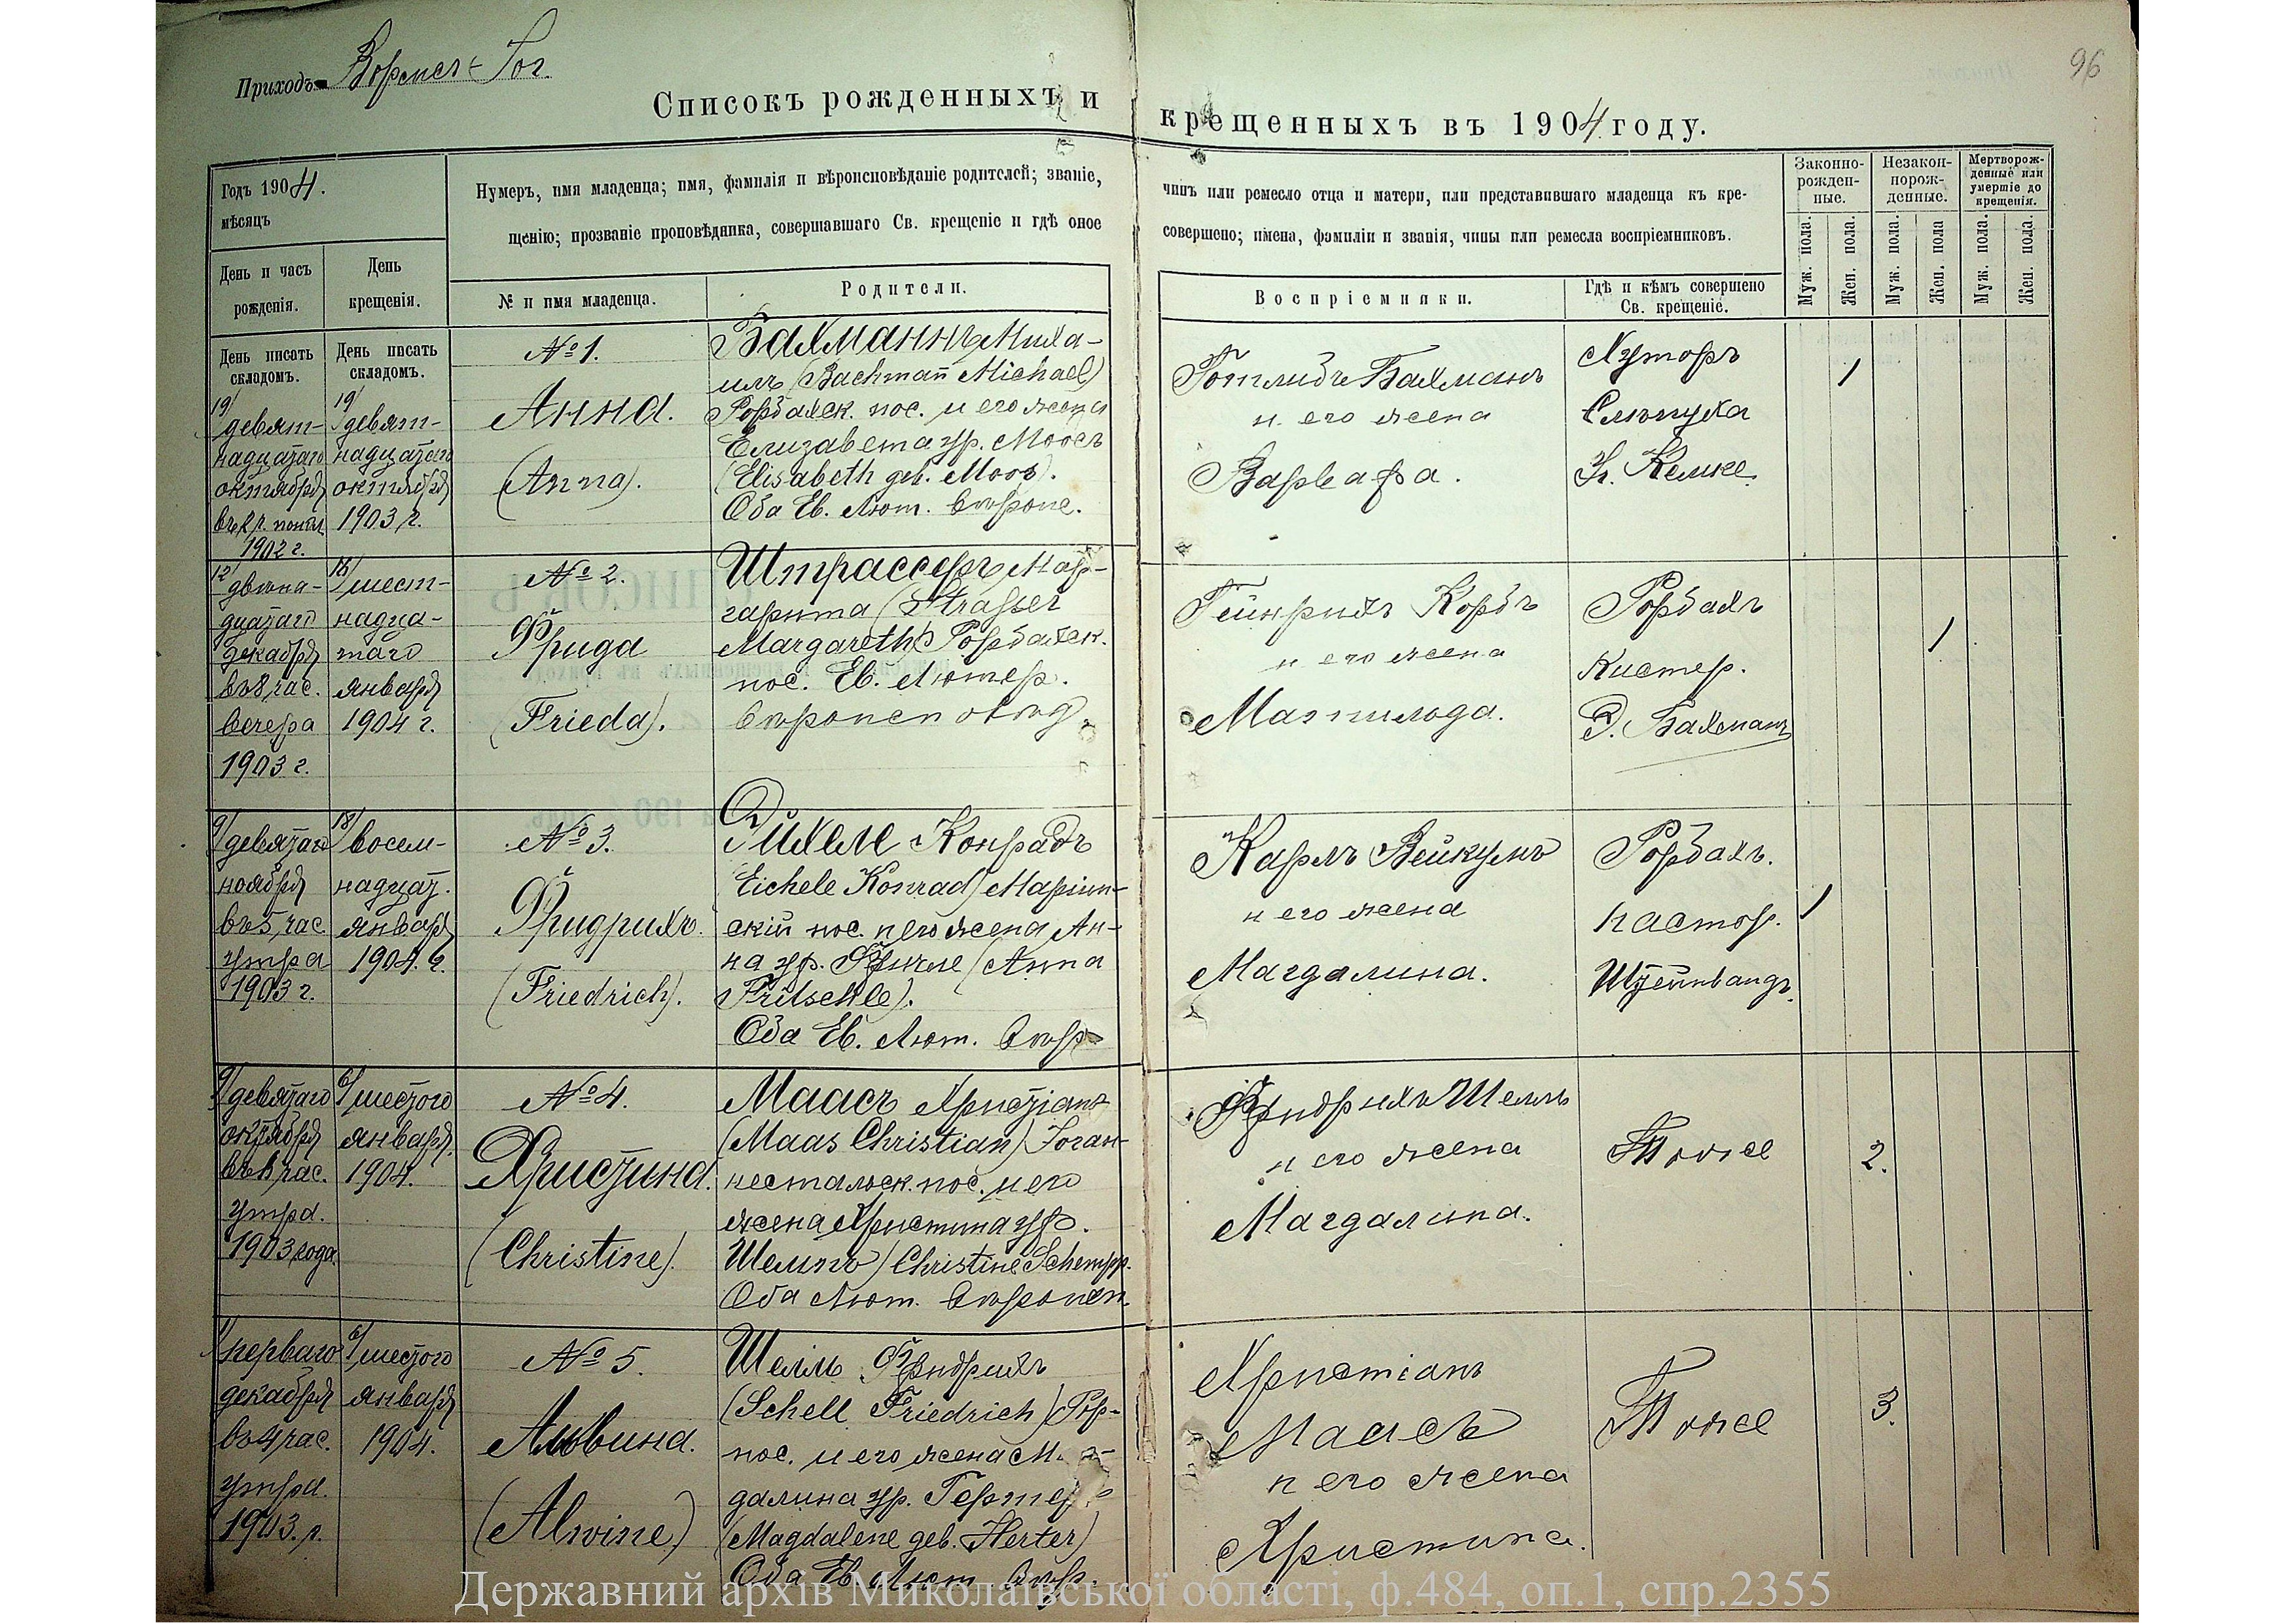 Приходъ Вормсъ-Рог.
96
Списокъ рожденныхъ и крещенныхъ въ 1904 году.
Годъ 1904.
мѣсяцъ
День и часъ
рожденія.
День
крещенія.
Нумеръ, имя младенца; имя, фамилія и вѣроисповѣданіе родителей; званіе, чинъ или ремесло отца и матери, или представившаго младенца къ кре-
щенію; прозваніе проповѣдника, совершавшаго Св. крещеніе и гдѣ оное совершено; имена, фамиліи и званія, чины или ремесла воспріемниковъ.
№ и имя младенца.
Родители.
Воспріемники.
Гдѣ и кѣмъ совершено
Св. крещеніе.
Законно-
рожден-
ные.
Незакон-
норож-
денные.
Мертворож-
денные или
умершіе до
крещенія.
Муж. пола.
Жен. пола.
Муж. пола.
Жен. пола
Муж. пола.
Жен. пола.
День писать
складомъ.
День писать
складомъ.
19/
девят-
надцатаго
октября
1902 г.
19/
девят-
надцатаго
октября
1903 г.
№ 1.
Анна.
(Anna).
Бахманнъ Миха-
илъ (Bachmann Michael)
Рорбахск. пос. и его жена
Елизавета ур. Моосъ
(Elisabeth geb. Moos).
Оба Ев. Лют. вѣропс.
Готлибъ Бахманъ
и его жена
Варвара.
Хуторъ
К. Кемке.
1
12/
двѣна-
дцатаго
декабря
въ 8 час.
вечера
1903 г.
16/
шест-
надца-
таго
января
1904 г.
№ 2.
Фрида
(Frieda).
Штрассеръ Мар-
гарита (Strasser
Margareth) Рорбахск.
пос. Ев. Лютер.
вѣроисповѣд.
Гейнрихъ Корбъ
и его жена
Матильда.
Рорбахъ
Кистер.
Э. Бахманъ
1
9/
девятаго
ноября
въ 5 час.
утра
1903 г.
18/
восем-
надцат.
января
1904 г.
№ 3.
Фридрихъ.
(Friedrich).
Эйхеле Конрадъ
Eichele Konrad) Маріин-
скій пос. и его жена Ан-
на ур. Фричле (Anna
Fritschle).
Оба Ев. Лют. вѣр.
Карлъ Вейкумъ
и его жена
Магдалина.
Рорбахъ.
пастор.
Штейнвандъ.
1
9/
девятаго
октября
въ 8 час.
утра.
1903 года.
6/
шестого
января.
1904.
№ 4.
Христина.
(Christine).
Маасъ Христіанъ
(Maas Christian) Іоган-
нестальск. пос. и его
жена Христина ур.
Шемпъ) Christine Schempp.
Оба Лют. вѣроисп.
Фридрихъ Шелль
и его жена
Магдалина.
Тоже
2.
1/
перваго
декабря
въ 4 час.
утра.
1903. г.
6/
шестого
января
1904.
№ 5.
Альвина.
(Alwine)
Шелль Фридрихъ
(Schell Friedrich) Рор-
пос. и его жена Маг-
далина ур. Гертеръ
(Magdalene geb. Herter)
Оба Ев. Лют. вѣр.
Христіанъ
Маасъ
и его жена
Христина.
Тоже
3.
Державний архів Миколаївської області, ф.484, оп.1, спр.2355